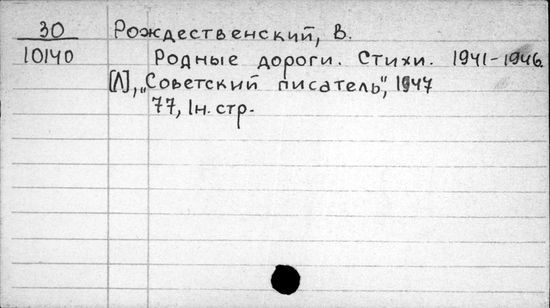 30 Рождественский, В.
10140 Родные дороги. Стихи. 1941-1946.
[Л], „Советский писатель", 1947
77, 1н. стр.